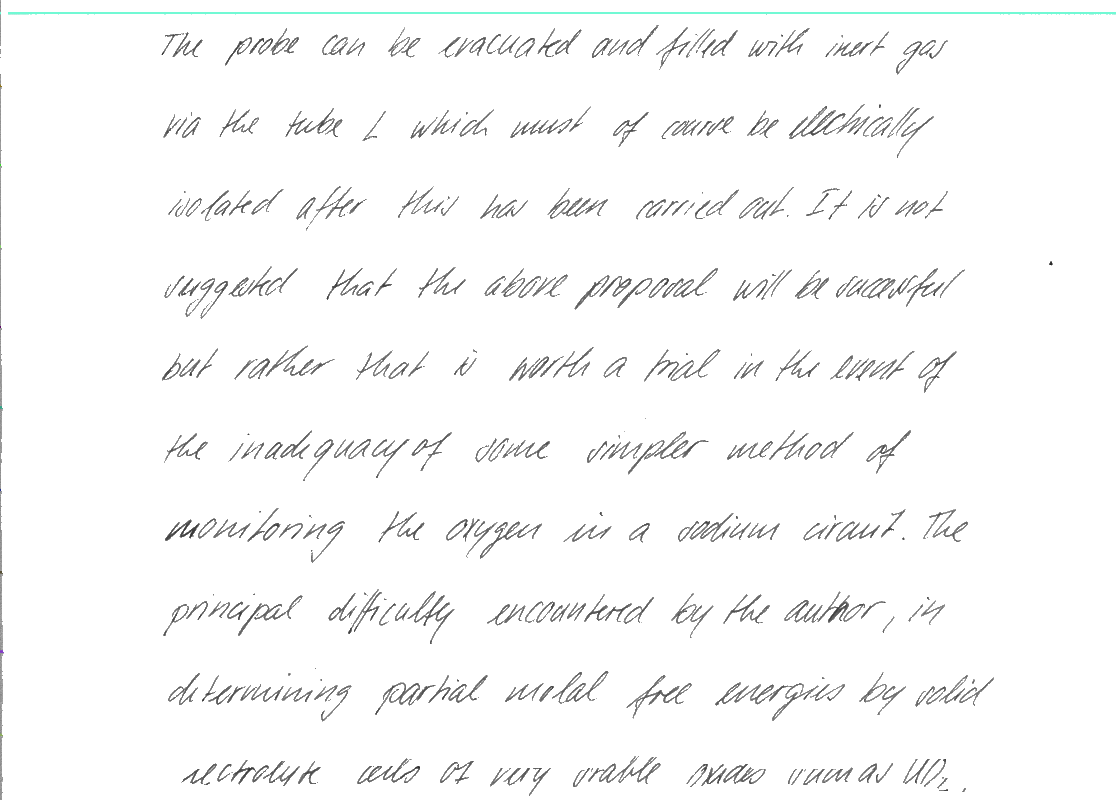 The probe can be evacuated and filled with inert gas
via the tube L which must of course be electrically
isolated after this has been carried out. It is not
suggested that the above proposal will be successful
but rather that is worth a trial in the event of
the inadequacy of some simpler method of
monitoring the oxygen in a sodium circuit. The
principal difficulty encountered by the author, in
determining partial molal free energies by solid
electrolyte cells of very stable oxides such as UO₂,